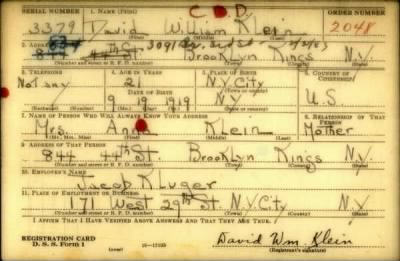 SERIAL NUMBER 1. NAME (Print) C.D.D. ORDER NUMBER
3379 David William Klein 2048
(First) (Middle) (Last)
2. ADDRESS (Print)
844 44th St. Brooklyn Kings N.Y.
(Number and street or R. F. D. number) (Town) (County) (State)
3. TELEPHONE 4. AGE IN YEARS 5. PLACE OF BIRTH 6. COUNTRY OF CITIZENSHIP
Not any 21 N.Y. City
DATE OF BIRTH (Town or county)
9 19 1919 N.Y. U.S.
(Exchange) (Number) (Mo.) (Day) (Yr.) (State or country)
7. NAME OF PERSON WHO WILL ALWAYS KNOW YOUR ADDRESS 8. RELATIONSHIP OF THAT PERSON
Mrs. Anna Klein Mother
(Mr., Mrs., Miss) (First) (Middle) (Last)
9. ADDRESS OF THAT PERSON
844 44th St. Brooklyn Kings N.Y.
(Number and street or R. F. D. number) (Town) (County) (State)
10. EMPLOYER'S NAME
Jacob Kluger
11. PLACE OF EMPLOYMENT OR BUSINESS
171 West 29th St. N.Y. City N.Y.
(Number and street or R. F. D. number) (Town) (County) (State)
I AFFIRM THAT I HAVE VERIFIED ABOVE ANSWERS AND THAT THEY ARE TRUE.
REGISTRATION CARD
D. S. S. Form 1 (over) David Wm. Klein
(Registrant's signature)